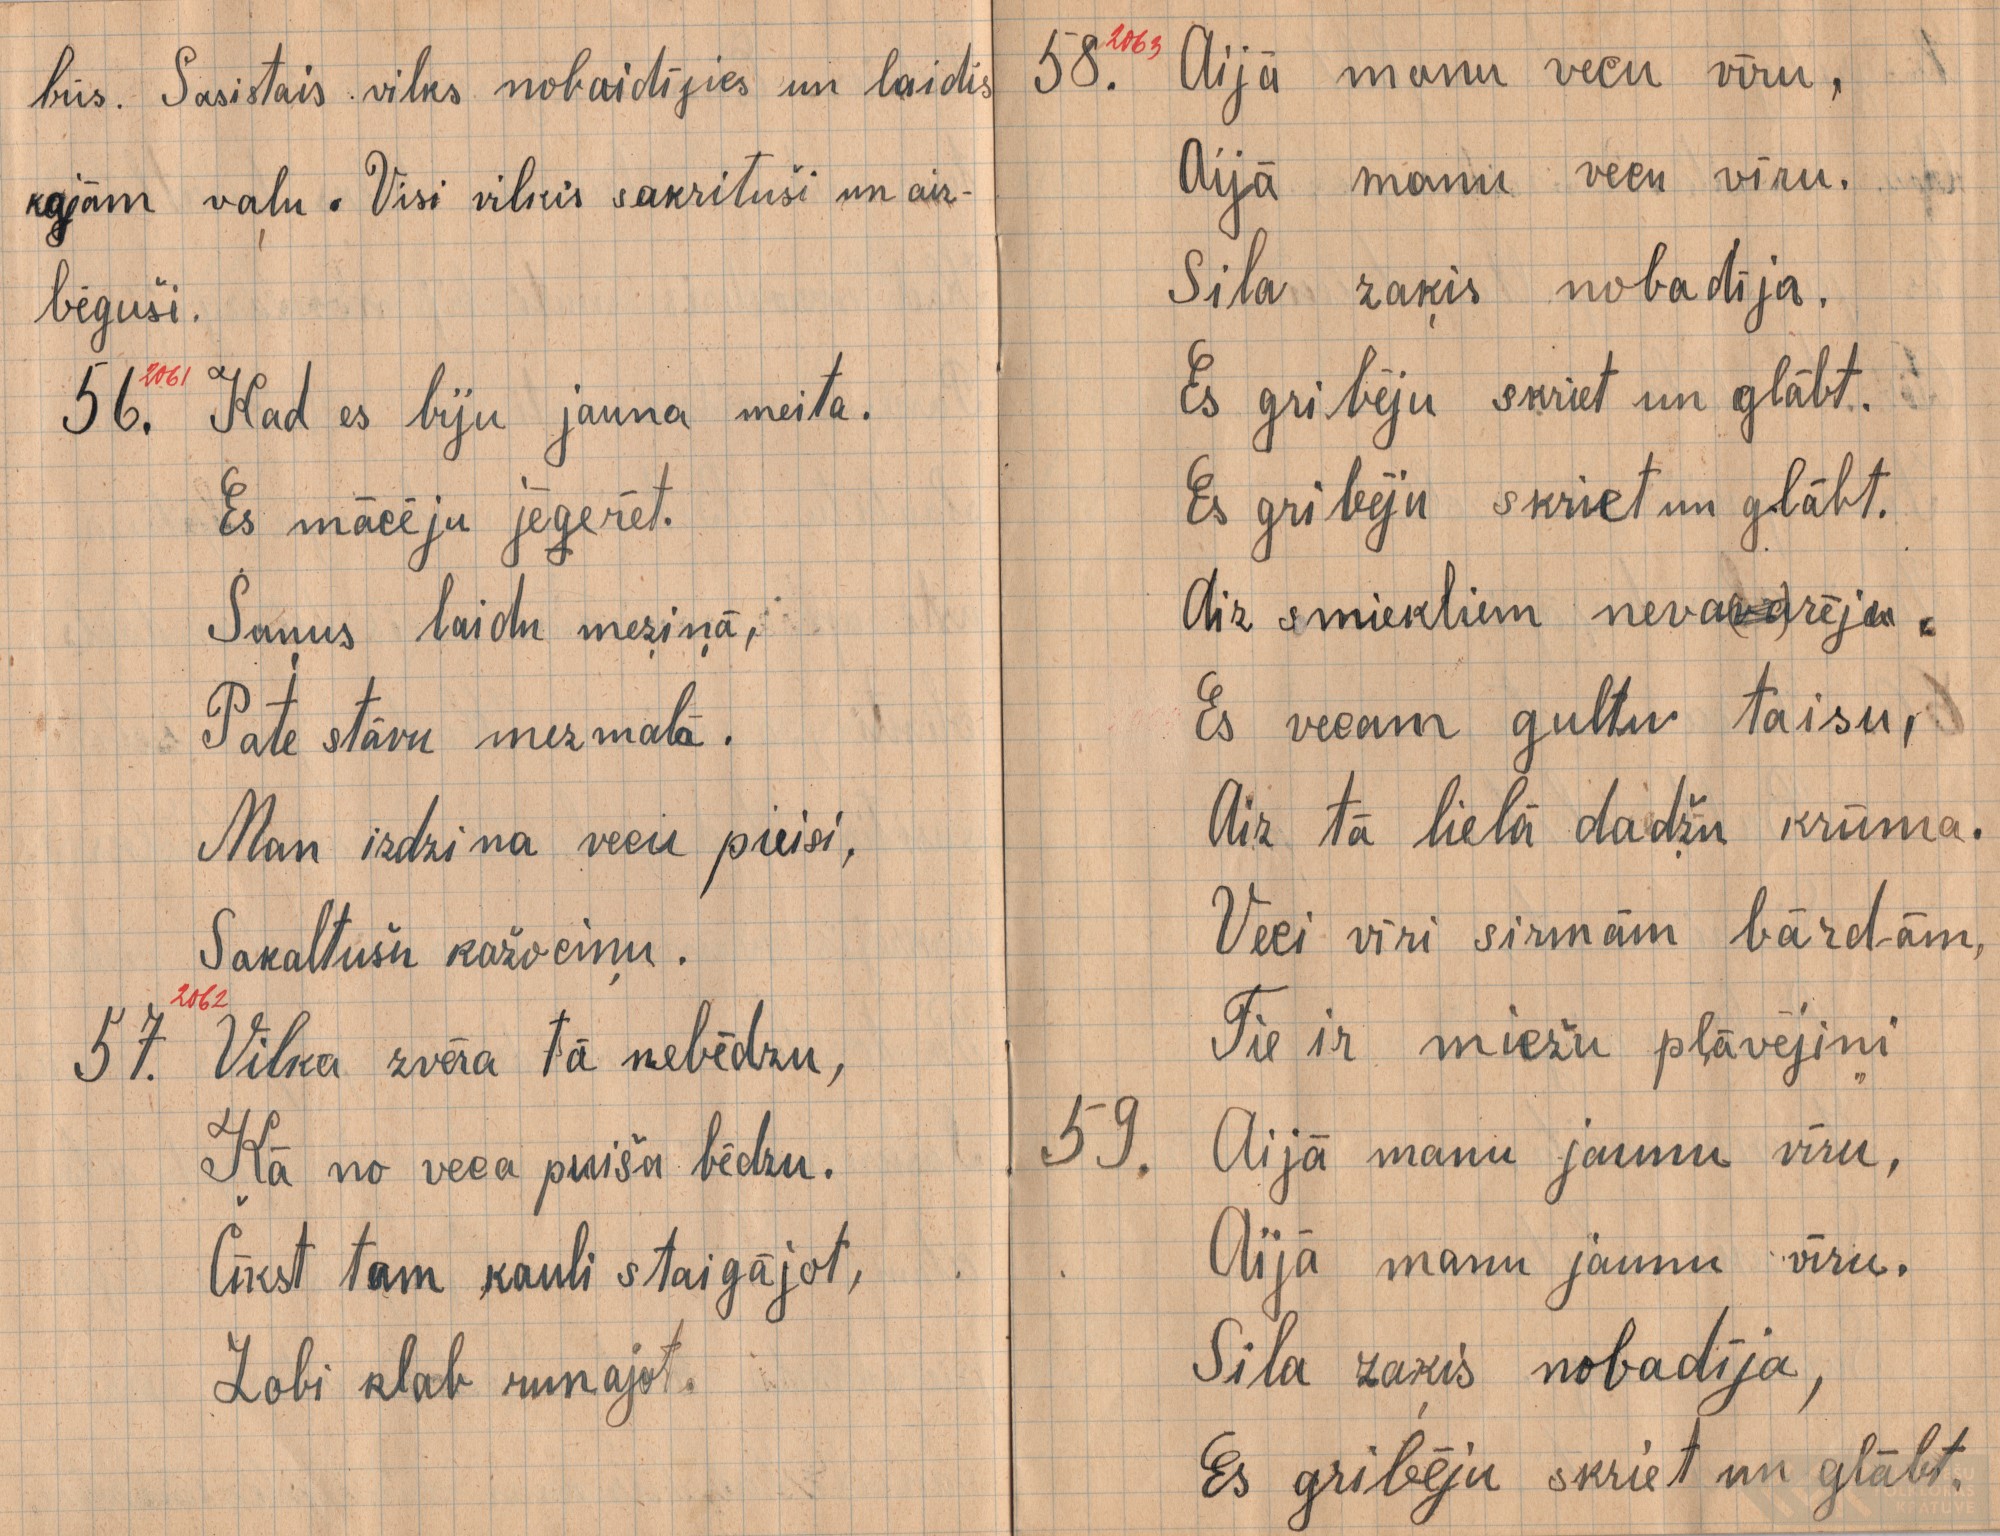 būs. Sasistais vilks nobaidījies un laidis
kājām vaļu. Visi vilkis sakrituši un aiz-
bēguši.
56. 2061 Kad es biju jauna meita.
Es mācēju jēgerēt.
Suņus laidu meziņā,
Pate stāvu mezmalā.
Man izdzina vecu puisi,
Sakaltušu kažociņu.
57. 2062 Vilka zvēra tā nebēdzu,
Kā no veca puiša bēdzu.
Čīkst tam kauli staigājot,
Zobi klab runajot.
58. 2063 Aijā manu vecu vīru,
Aijā manu vecu vīru.
Sila zaķis nobadīja.
Es gribēju skriet un glābt.
Es gribēju skriet un glābt.
Aiz smiekliem nevarēju.
Es vecam gultu taisu,
Aiz tā lielā dadžu krūma.
Veci vīri sirmām bārdām,
Tie ir miežu pļāvējiņi
59. Aijā manu jaunu vīru,
Aijā manu jaunu vīru.
Sila zaķis nobadīja,
Es gribēju skriet un glābt.
KRĀTUVE